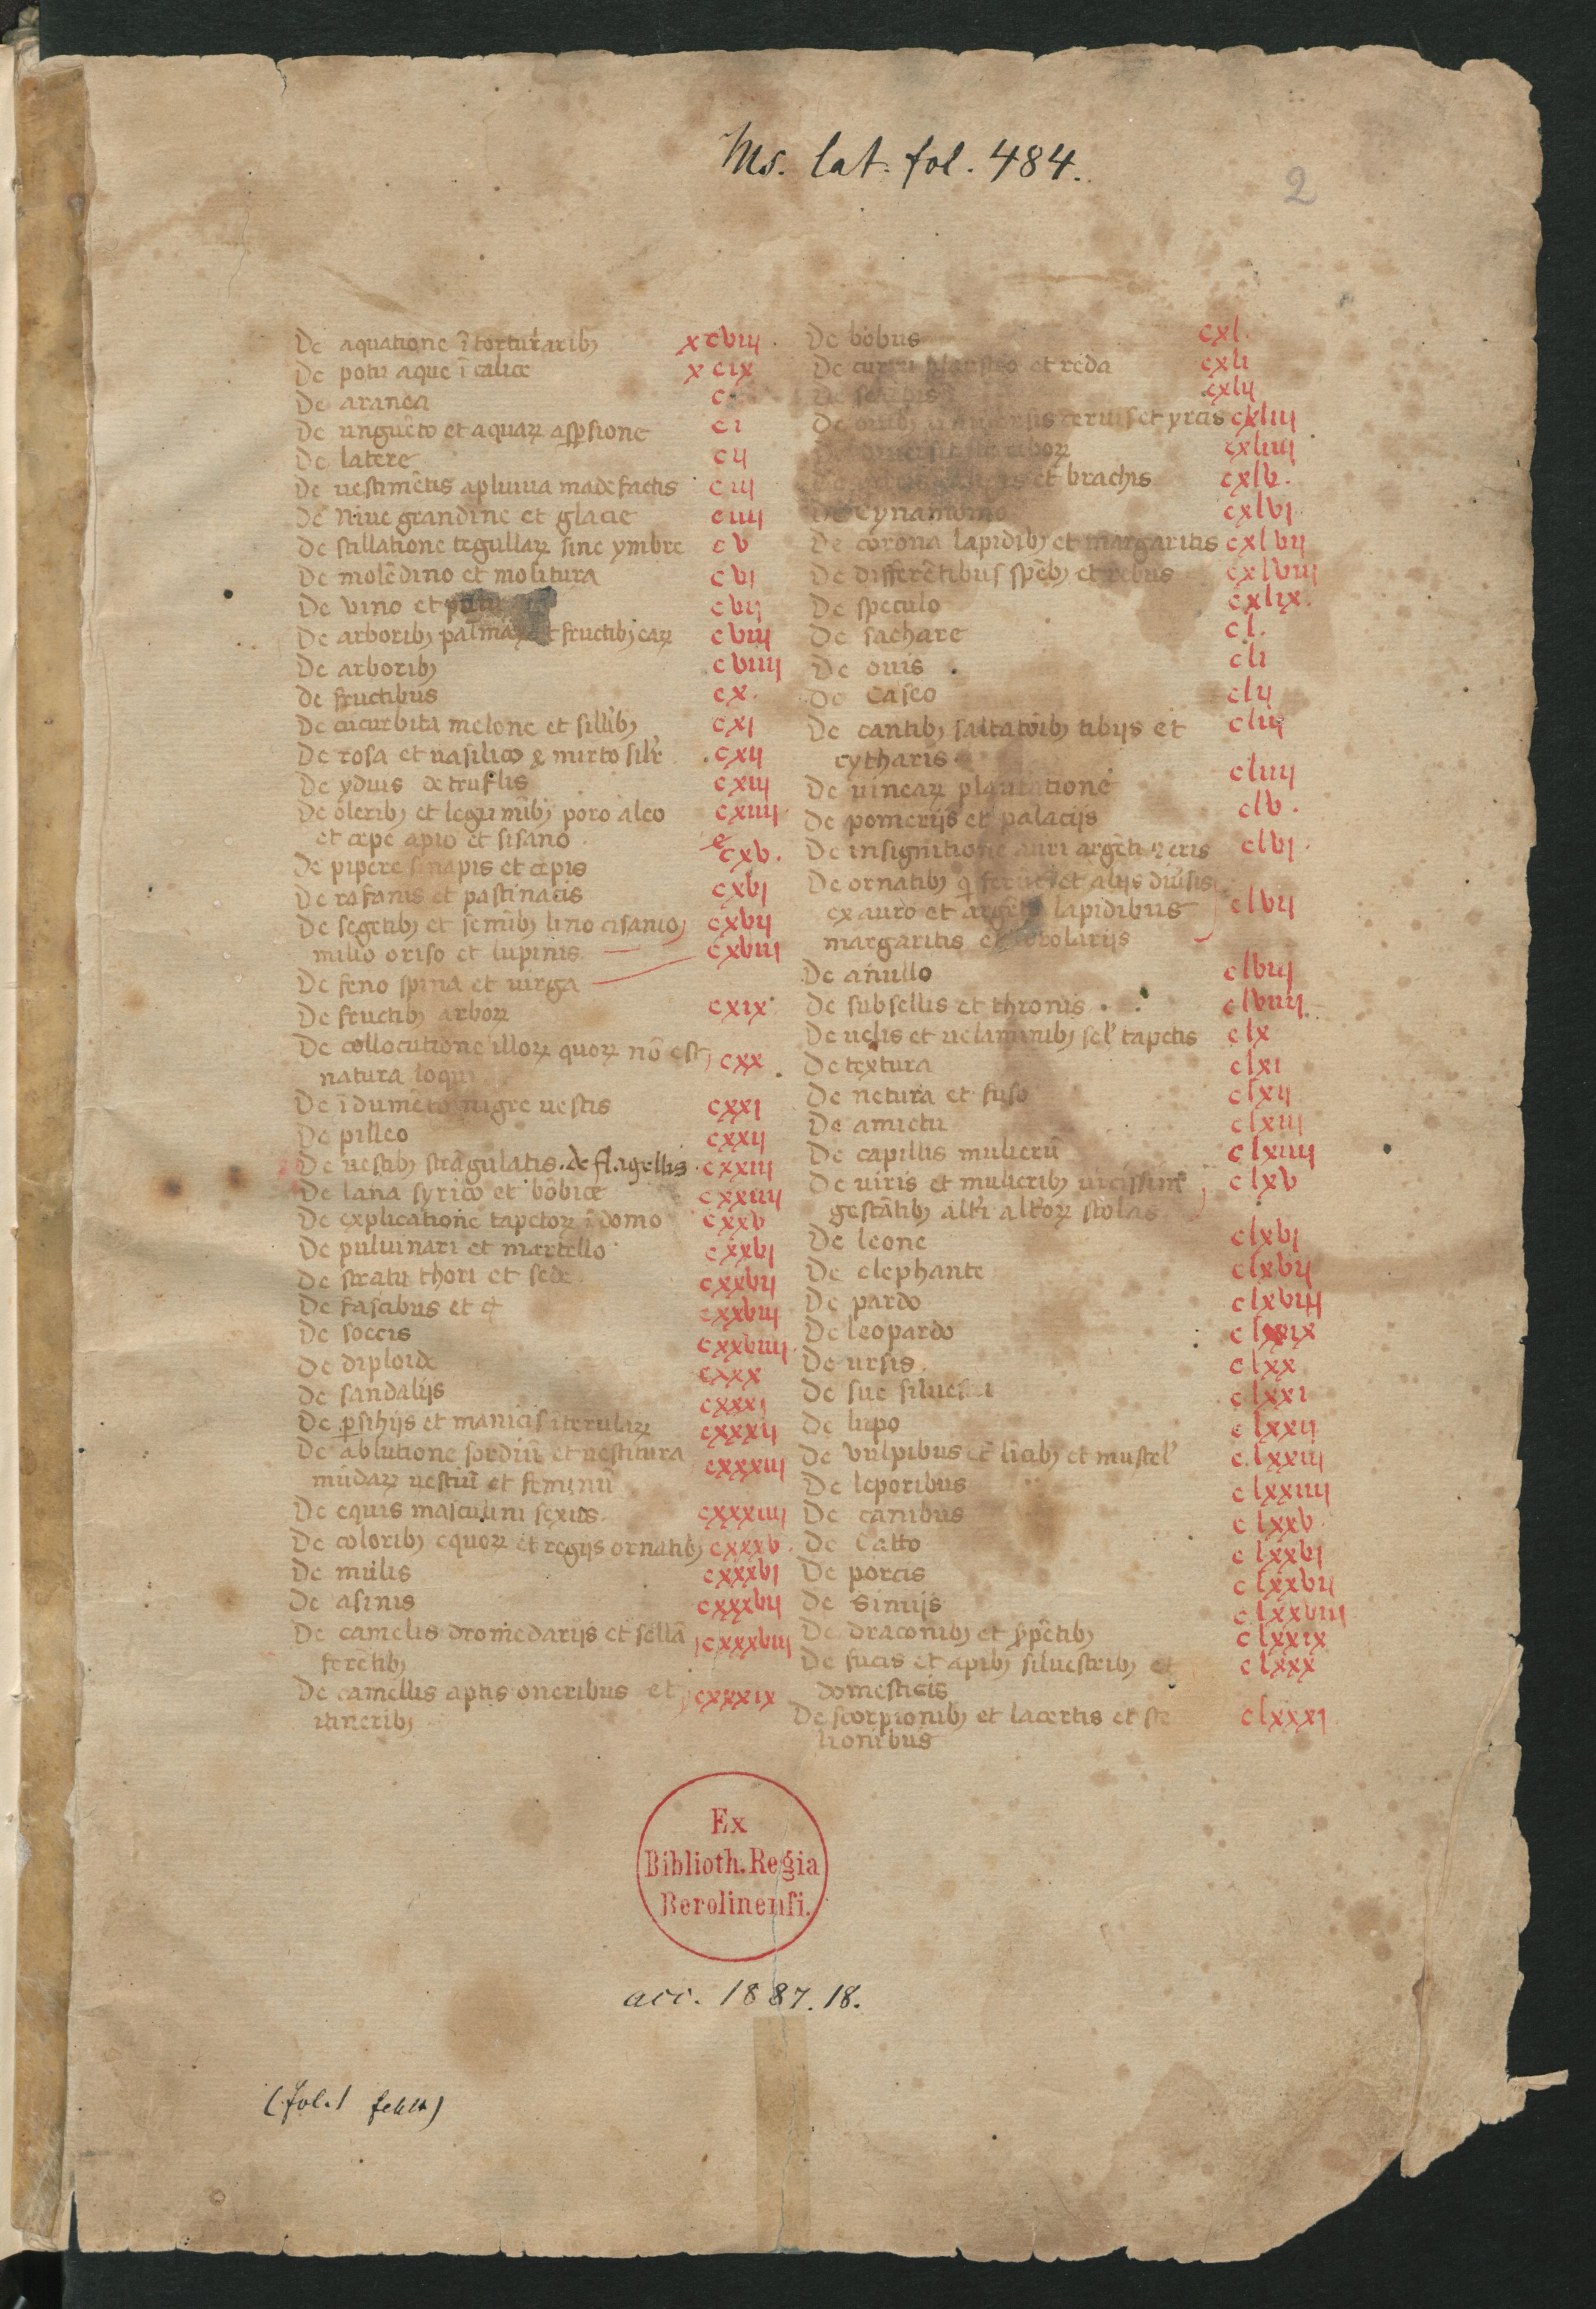 Ms. lat. fol. 484.
2
De aquatione ī torturaribꝫ xcviij.
De potu aque ī calice xcix
De aranea c.
De ungueto et aquaꝝ asꝑsione ci
De latere cij
De uestimētis apluuia madefactis ciij
De niue grandine et glacie ciiij
De stillatione tegullaꝝ sine ymbre cv
De molēdino et molitura cvj
De vino et cvij
De arboribꝫ palmaꝝ et fructibꝫ eaꝝ cviij
De arboribꝫ cviiij
De fructibus cx.
De cucurbita melone et sillibꝫ cxj
De rosa et uasilico & mirto silr̄ cxij
De yduis & truflis cxiij
De oleribꝫ et legumībꝫ poro aleo cxiiij
et cepe apio et sisano
De pipere sinapis et cepis cxv.
De rafanis et pastinacis cxvj
De segetibꝫ et semībꝫ lino cisanio cxvij
milio oriso et lupinis
De feno spina et uirga cxviij
De fructibꝫ arboꝝ cxix
De collocutione illoꝝ quoꝝ nō est cxx
natura loqui
De īdumēto nigre uestis cxxj
De pilleo cxxij
De uestibꝫ strāgulatis. de flagellis. cxxiij
De lana syrico et bōbice cxxiiij
De explicatione tapetoꝝ ī domo cxxv
De puluinari et martello cxxvj
De stratu thori et sede cxxvij
De fascibus et cxxviij
De soccis cxxviiij.
De diploide cxxx
De sandalijs cxxxj
De ꝑsihijs et manicis iterulaꝝ cxxxij
De ablutione sordiū et uestitura cxxxiij
mūdaꝝ uestiū et feminū
De equis masculini sexus. cxxxiiij
De coloribꝫ equoꝝ et regijs ornatibꝫ cxxxv.
De mulis cxxxvj
De asinis cxxxvij
De camelis dromedarijs et sellā cxxxviij
feretibꝫ
De camellis aptis oneribus et cxxxix
itineribꝫ
De bobus cxl.
De curru plaustro et reda cxli
De cxlij
De ouibꝫ ceruis et yrcis cxliij
De cxliiij
De et brachis cxlv.
De cynamomo cxlvj
De corona lapidibꝫ et margaritis cxlvij
De differētibus spēbꝫ et rebus cxlviij
De speculo cxlix.
De sachare cl.
De ouis cli
De Caseo clij
De cantibꝫ saltatōibꝫ tibijs et cliij
cytharis.
De uineaꝝ plantatione cliiij
De pomerijs et palacijs clv.
De insignitione auri argēti & eris clvj.
De ornatibꝫ et alijs diuˀsis
ex auro et argēto lapidibus clvij
margaritis et
De anullo clviij
De subsellis et thronis. clviiij
De uelis et uelaminibꝫ sel' tapetis clx
De textura clxi
De netura et fuso clxij
De amictu clxiij
De capillis mulierū clxiiij
De uiris et mulieribꝫ uicissim clxv
gestātibꝫ alt'i alt'oꝝ stolas
De leone clxvj
De elephante clxvij
De pardo clxviij
De leopardo clxix
De ursis. clxx
De sue siluestri clxxi
De lupo clxxij
De vulpibus et līcibꝫ et mustel' clxxiij
De leporibus clxxiiij
De canibus clxxv.
De Catto clxxvj
De porcis clxxvij
De Simijs clxxviij
De draconibꝫ et ẜpētibꝫ clxxix
De fucis et apibꝫ siluestribꝫ et clxxx
domesticis
De scorpionibꝫ et lacertis et ste clxxxj
lionibus
Ex
Biblioth. Regia
Berolinensi.
acc. 1887. 18.
(fol. 1 fehlt)